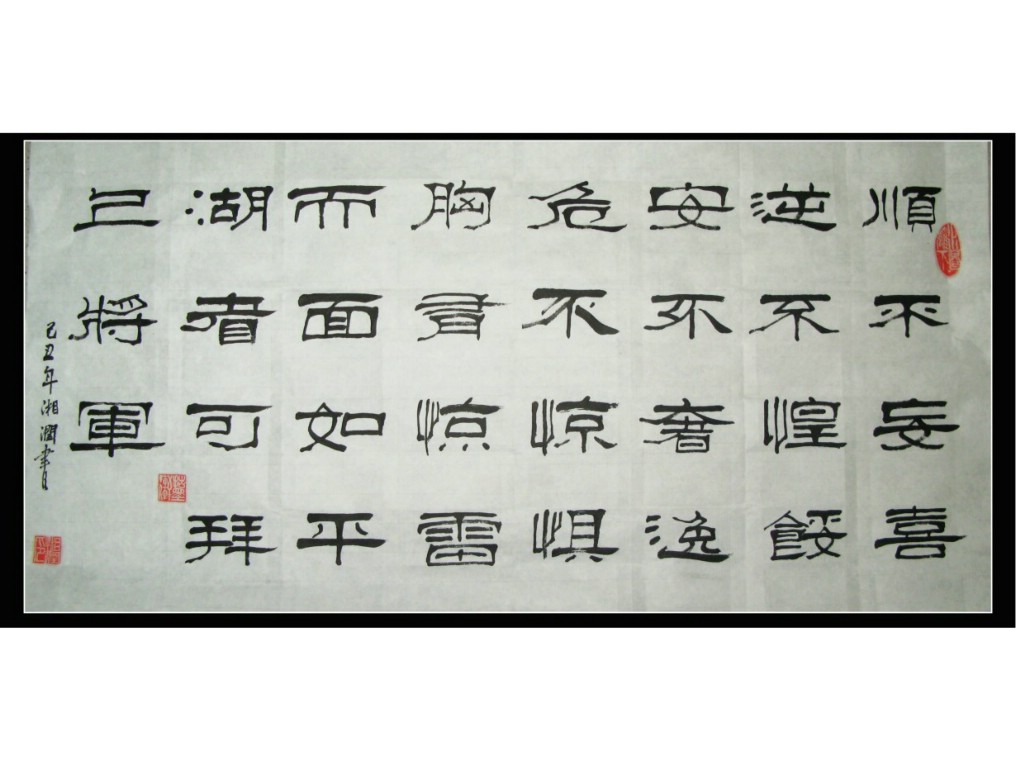 順不妄喜
逆不惶餒
安不奢逸
危不惊惧
胸有惊雷
而面如平
湖者可拜
上將軍
己丑年湘潤書